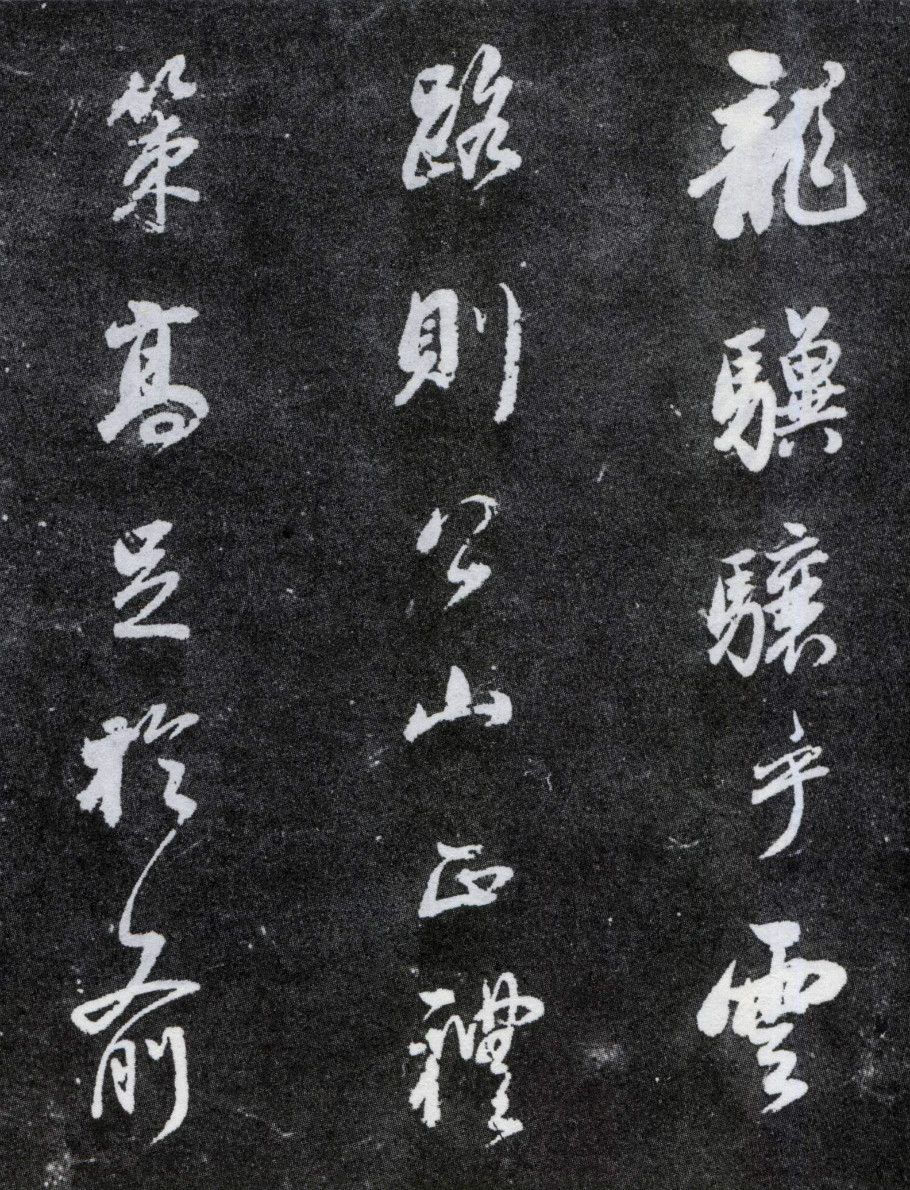 龍驥驤乎雲
路則公山正禮
策高足於前